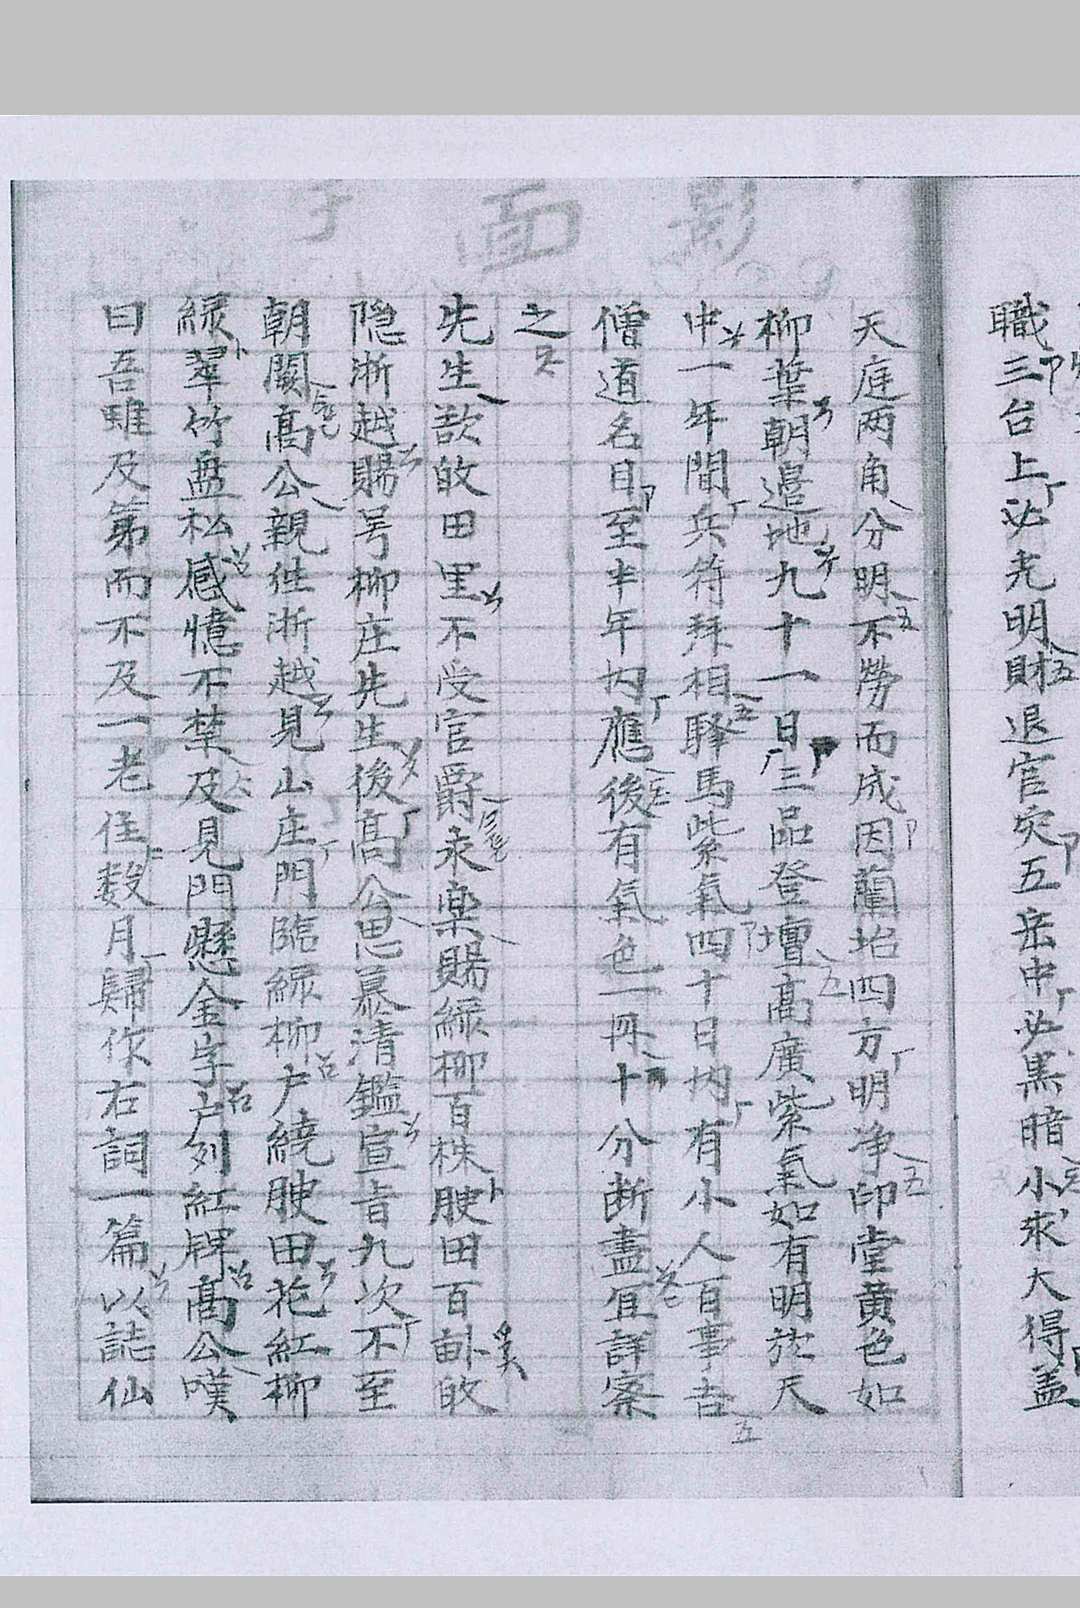 職三台上必光明財退官灾五岳中必黑暗小求大得盖
天庭両角分明不勞而成因蘭坮四方明净印堂黄色如
柳葉朝邉地九十一日三品登壇高廣紫氣如有明於天
中一年間兵符拜相驛馬紫氣四十日内有小人百事吉
僧道名目至半年内應後有氣色一再十分断盡宜詳察
之
先生欲敀田里不受官爵永楽賜綠柳百株腴田百畝敀
隠浙越賜号柳庄先生後高公思慕清鑑宣旨九次不至
朝闕高公親徃浙越見山庄門臨綠柳户繞腴田花紅柳
綠翠竹盤松感憶不禁及見門懸金字户列紅牌高公嘆
曰吾雖及第而不及一老住数月歸作右詞一篇以誌仙
影面子